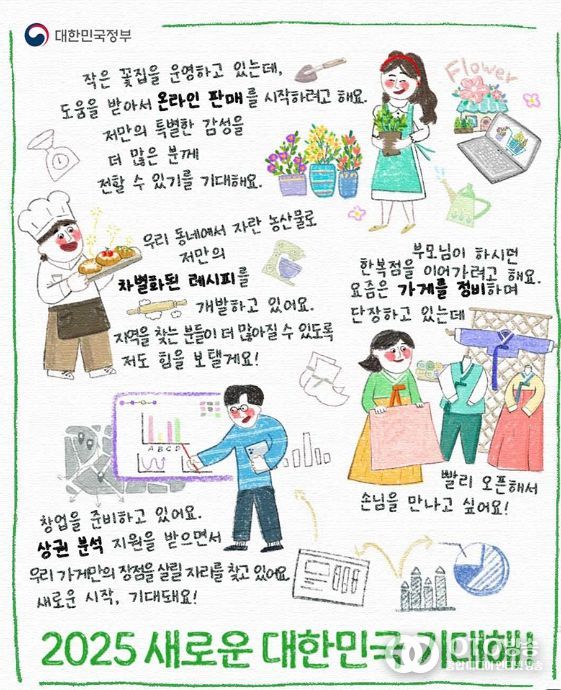 대한민국정부
작은 꽃집을 운영하고 있는데,
도움을 받아서 온라인 판매를 시작하려고 해요.
저만의 특별한 감성을
더 많은 분께
전할 수 있기를 기대해요.
Flower
우리 동네에서 자란 농산물로
저만의
차별화된 레시피를
개발하고 있어요.
지역을 찾는 분들이 더 많아질 수 있도록
저도 힘을 보탤게요!
부모님이 하시던
한복점을 이어가려고 해요.
요즘은 가게를 정비하며
단장하고 있는데
빨리 오픈해서
손님을 만나고 싶어요!
A B C D
창업을 준비하고 있어요.
상권 분석 지원을 받으면서
우리 가게만의 장점을 살릴 자리를 찾고 있어요
새로운 시작, 기대돼요!
2025 새로운 대한민국 기대해!